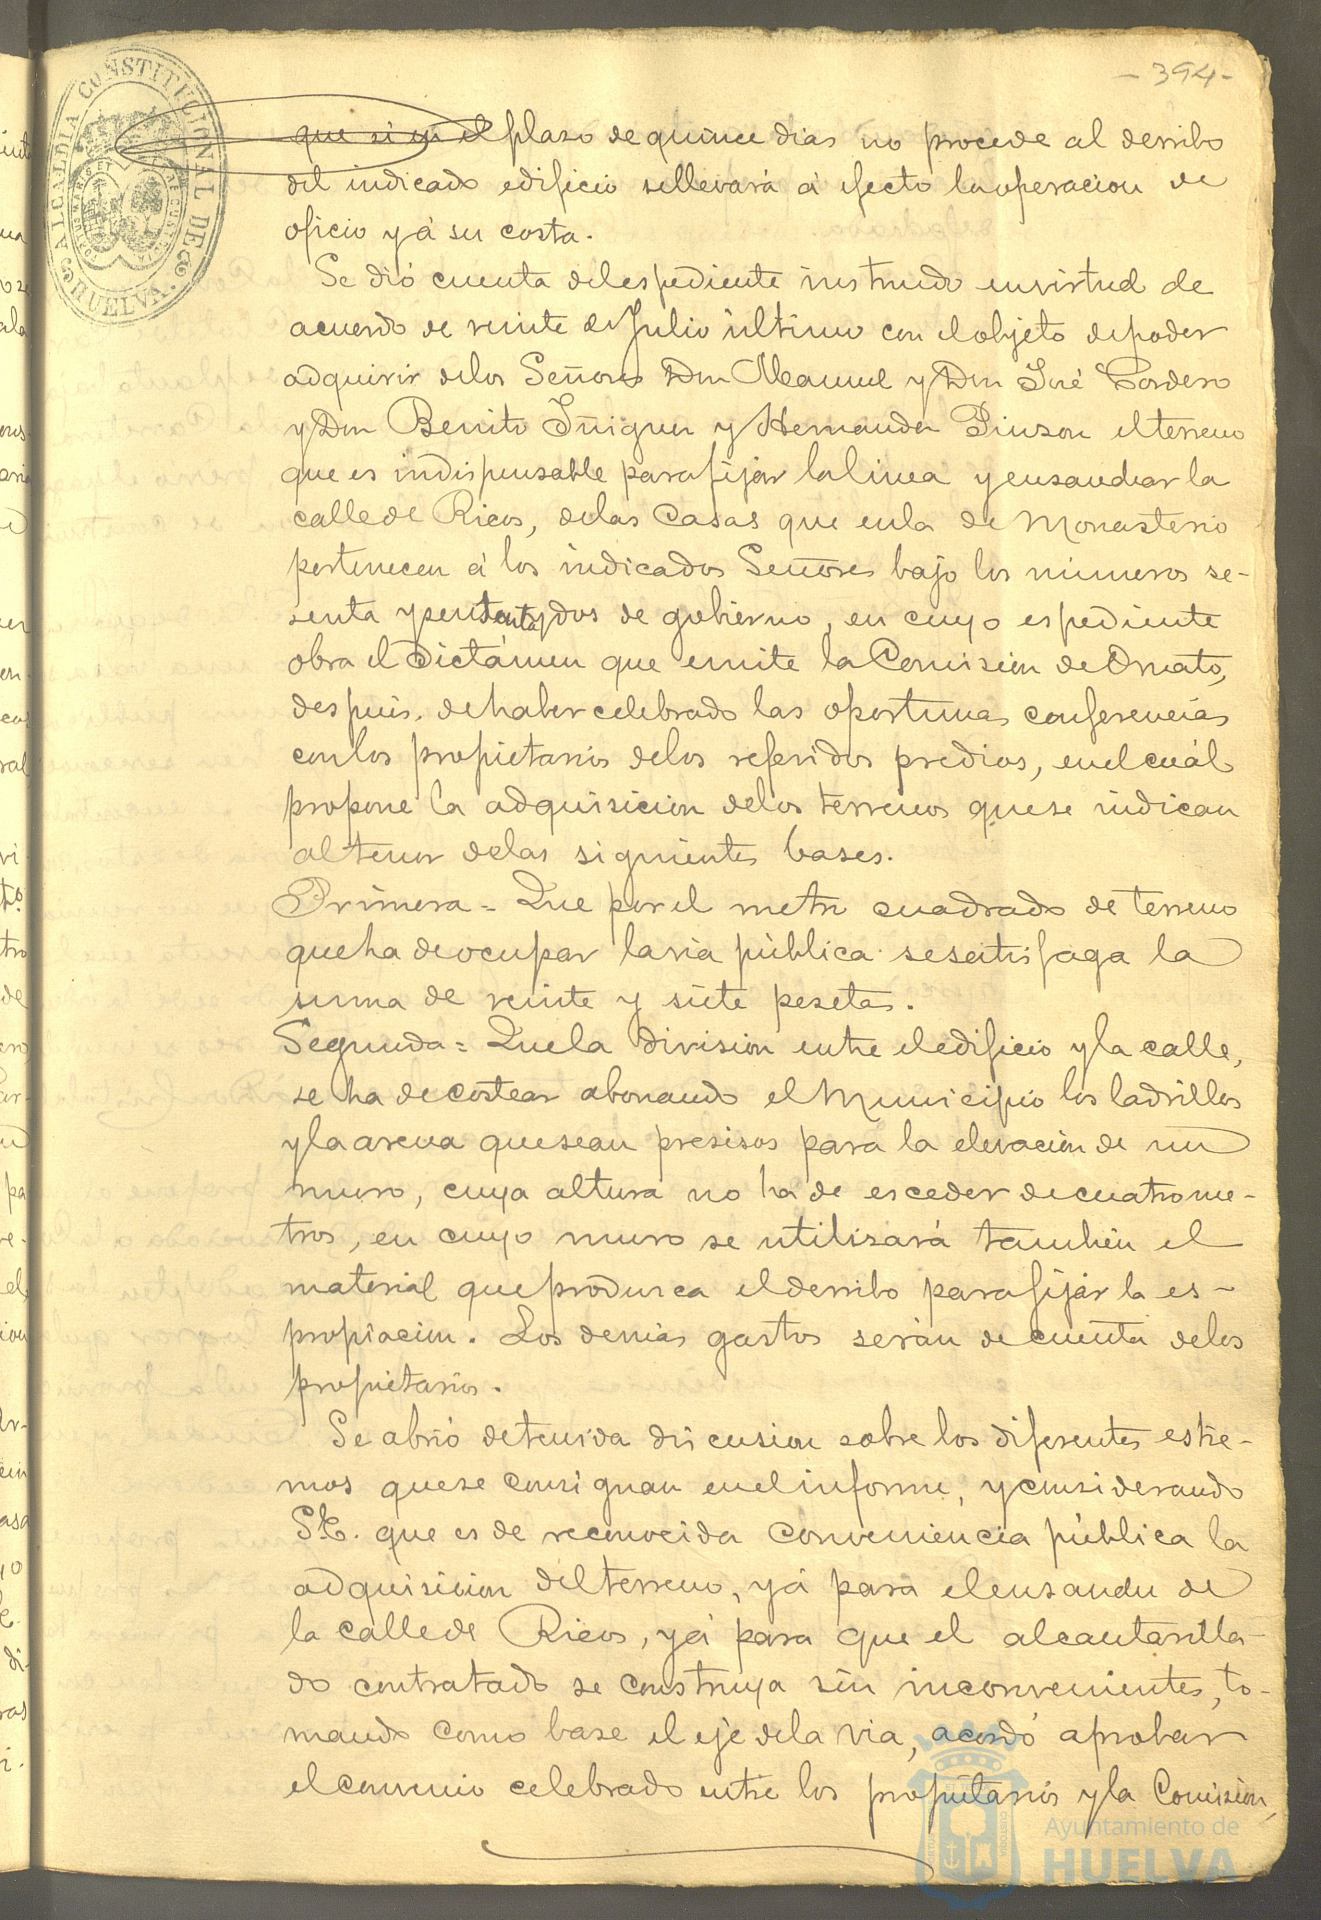 -394-
ALCALDIA CONSTITUCIONAL DE HUELVA.
que si en el plaso de quince dias no procede al derribo
del indicado edificio se llevará á efecto la operacion de
oficio y á su costa.
Se dió cuenta del espediente instruido en virtud de
acuerdo de veinte de Julio último con el objeto de poder
adquirir de los Señores Don Manuel y Don José Cordero
y Don Benito Iñiguez y Hernandez Pinzon el terreno
que es indispensable para fijar la linea y ensanchar la
calle de Ricos, de las Casas que en la de Monasterio
pertenecen á los indicados Señores bajo los números se-
senta y sesenta y dos de gobierno, en cuyo espediente
obra el dictámen que emite la Comision de Ornato,
despues de haber celebrado las oportunas conferencias
con los propietarios de los referidos predios, en el cuál
propone la adquisicion de los terrenos que se indican
al tenor de las siguientes bases.
Primera = Que por el metro cuadrado de terreno
que ha de ocupar la via pública se satisfaga la
suma de veinte y siete pesetas.
Segunda = Que la division entre el edificio y la calle,
se ha de costear abonando el Municipio los ladrillos
y la arena que sean presisos para la elevacion de un
muro, cuya altura no ha de esceder de cuatro me-
tros, en cuyo muro se utilisará tambien el
material que produsca el derribo para fijar la es-
propiacion. Los demás gastos serán de cuenta de los
propietarios.
Se abrió detenida discusion sobre los diferentes estre-
mos que se consignan en el informe, y considerando
S.E. que es de reconocida conveniencia pública la
adquisicion del terreno, yá para el ensanche de
la calle de Ricos, yá para que el alcantarilla-
do contratado se construya sin inconvenientes, to-
mando como base el eje de la via, acordó aprobar
el convenio celebrado entre los propietarios y la Comision,
Ayuntamiento de
HUELVA